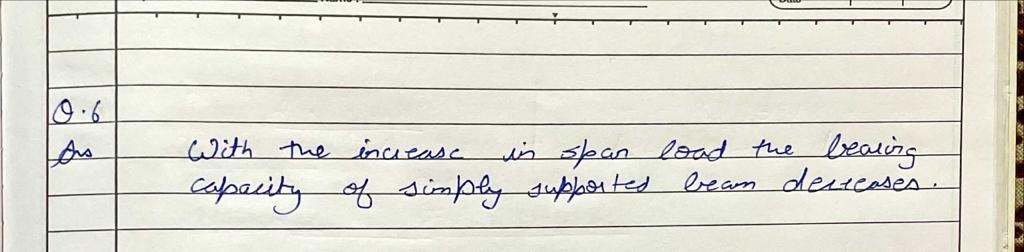 Q.6
Ans With the increase in span load the bearing
capacity of simply supported beam decreases.